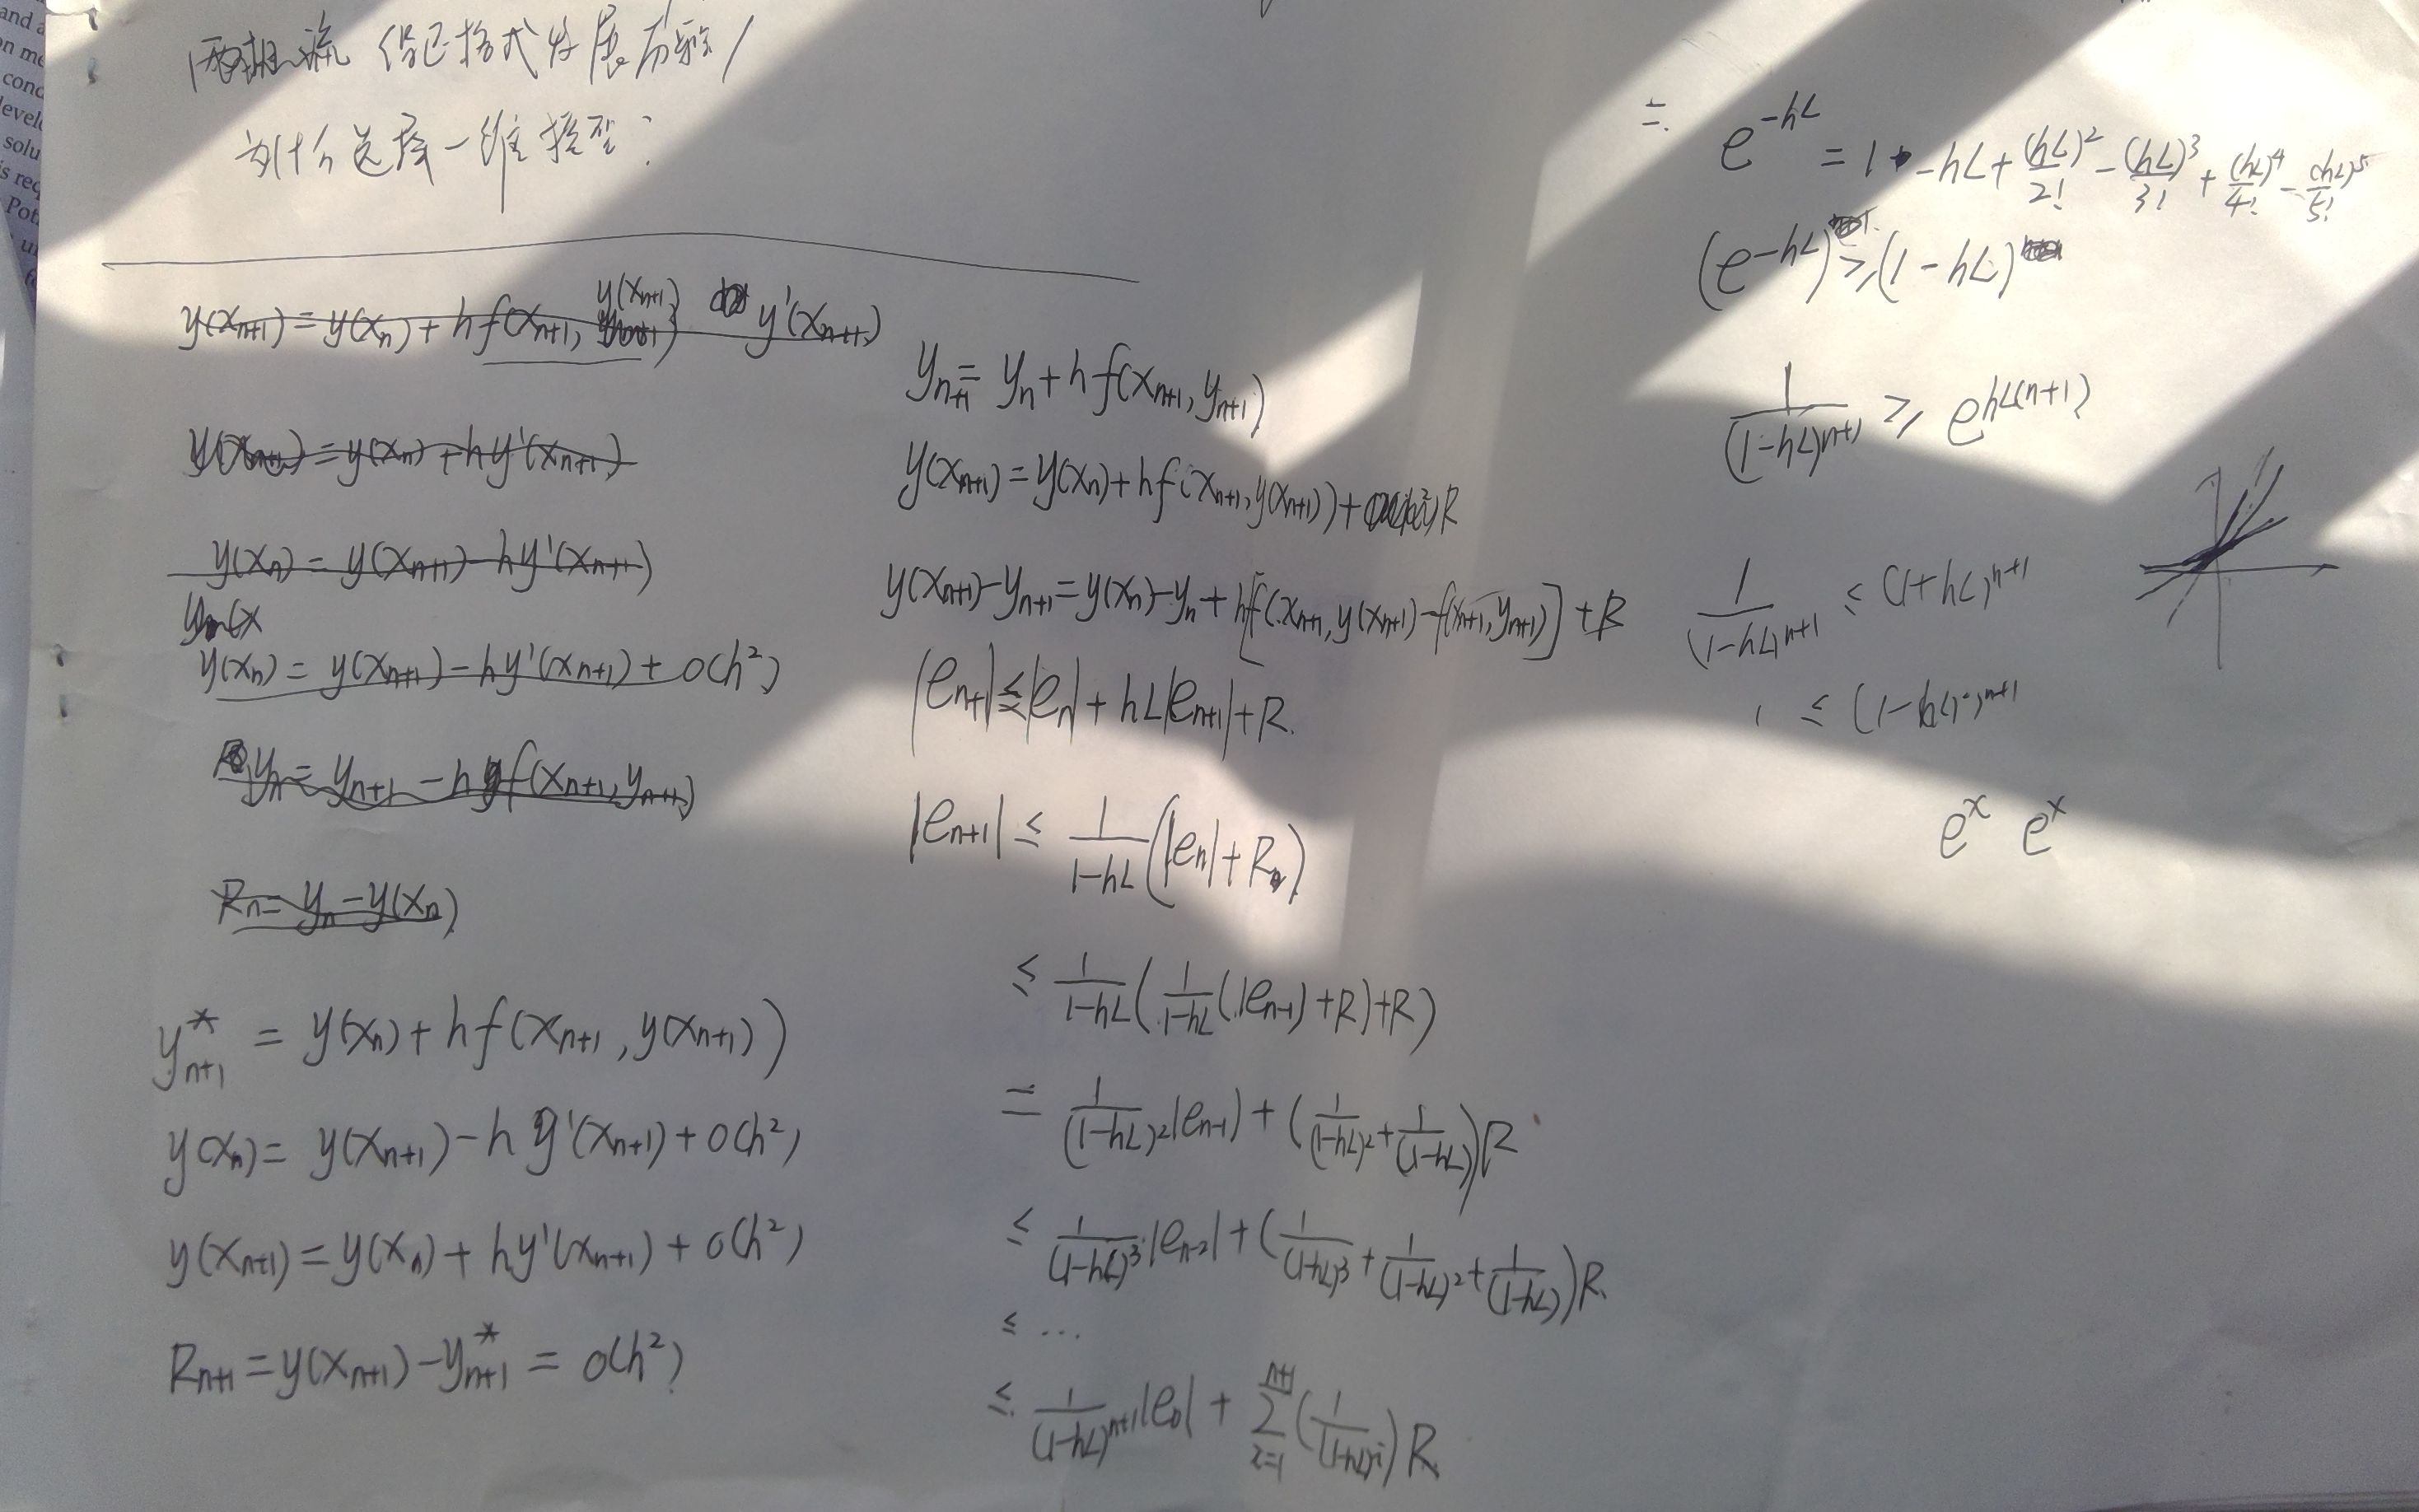 两相流 格式发展历程
为什么选择一维模型?
y(xₙ₊₁) = y(xₙ) + hf(xₙ₊₁, y(xₙ₊₁)) y'(xₙ₊₁)
y(xₙ₊₁) = y(xₙ) + hy'(xₙ₊₁)
y(xₙ) = y(xₙ₊₁) - hy'(xₙ₊₁)
y(xₙ) = y(xₙ₊₁) - hy'(xₙ₊₁) + O(h²)
yₙ = yₙ₊₁ - hf(xₙ₊₁, yₙ₊₁)
Rₙ = yₙ - y(xₙ)
y*ₙ₊₁ = y(xₙ) + hf(xₙ₊₁, y(xₙ₊₁))
y(xₙ) = y(xₙ₊₁) - hy'(xₙ₊₁) + O(h²)
y(xₙ₊₁) = y(xₙ) + hy'(xₙ₊₁) + O(h²)
Rₙ₊₁ = y(xₙ₊₁) - y*ₙ₊₁ = O(h²)
yₙ₊₁ = yₙ + hf(xₙ₊₁, yₙ₊₁)
y(xₙ₊₁) = y(xₙ) + hf(xₙ₊₁, y(xₙ₊₁)) + R
y(xₙ₊₁) - yₙ₊₁ = y(xₙ) - yₙ + h[f(xₙ₊₁, y(xₙ₊₁) - f(xₙ₊₁, yₙ₊₁)] + R
|eₙ₊₁| ≤ |eₙ| + hL|eₙ₊₁| + R.
|eₙ₊₁| ≤ 1/(1-hL) (|eₙ| + R)
≤ 1/(1-hL) (1/(1-hL) (|eₙ₋₁| + R) + R)
= 1/(1-hL)² |eₙ₋₁| + (1/(1-hL)² + 1/(1-hL)) R
≤ 1/(1-hL)³ |eₙ₋₂| + (1/(1-hL)³ + 1/(1-hL)² + 1/(1-hL)) R.
≤ ...
≤ 1/(1-hL)ⁿ⁺¹ |e₀| + Σᵢ₌₁ⁿ⁺¹ (1/(1-hL)ⁱ) R
二.
e^(-hL) = 1 - hL + (hL)²/2! - (hL)³/3! + (hL)⁴/4! - (hL)⁵/5!
(e^(-hL)) ≥ (1-hL)
1/(1-hL)ⁿ⁺¹ ≥ e^(hL(n+1))
1/(1-hL)ⁿ⁺¹ ≤ (1+hL)ⁿ⁺¹
eˣ eˣ